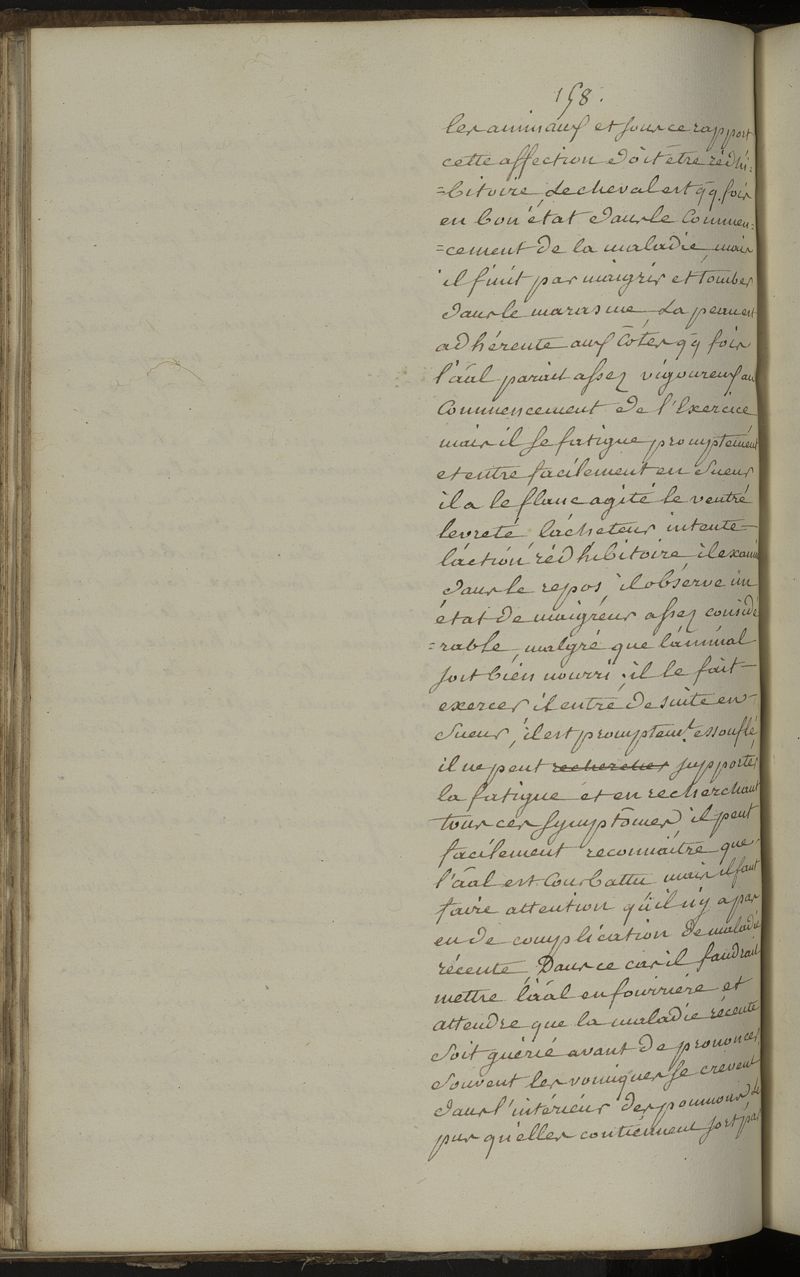 158.
les animaux et sous ce rapport
cette affection doit être rédhi=
=bitoire, le cheval est qq. fois
en bon état dans le commen=
=cement de la maladie, mais
il finit par maigrir et tomber
dans le marasme, la peau est
adhérente aux côtes qq fois
l'aāl parait assez vigoureux au
Commencement de l'Exercice
mais il se fatigue promptement
et entre facilement en sueur
il a le flanc agité le ventre
levreté l'acheteur intente
l'action rédhibitoire, il examine
dans le repos, il observe un
état de maigreur assez considé
=rable, malgré que l'animal
soit bien nourri; il le fait
exercer il entre de suite en
sueur, il est promptemt. essouflé
il ne peut rechercher supporter
la fatigue et en recherchant
tous ces symptômes il peut
facilement reconnaître que
l'aāl est Courbattu mais il faut
faire attention qu'il n'y a pas
en de complication de maladie
récente, Dans ce cas il faudrait
mettre l'aāl en fourrière et
attendre que la maladie récente
soit guérie avant de prononcer,
souvent les vomiques se crèvent
dans l'intérieur des poumons le
pus qu'elles contiennent sort par